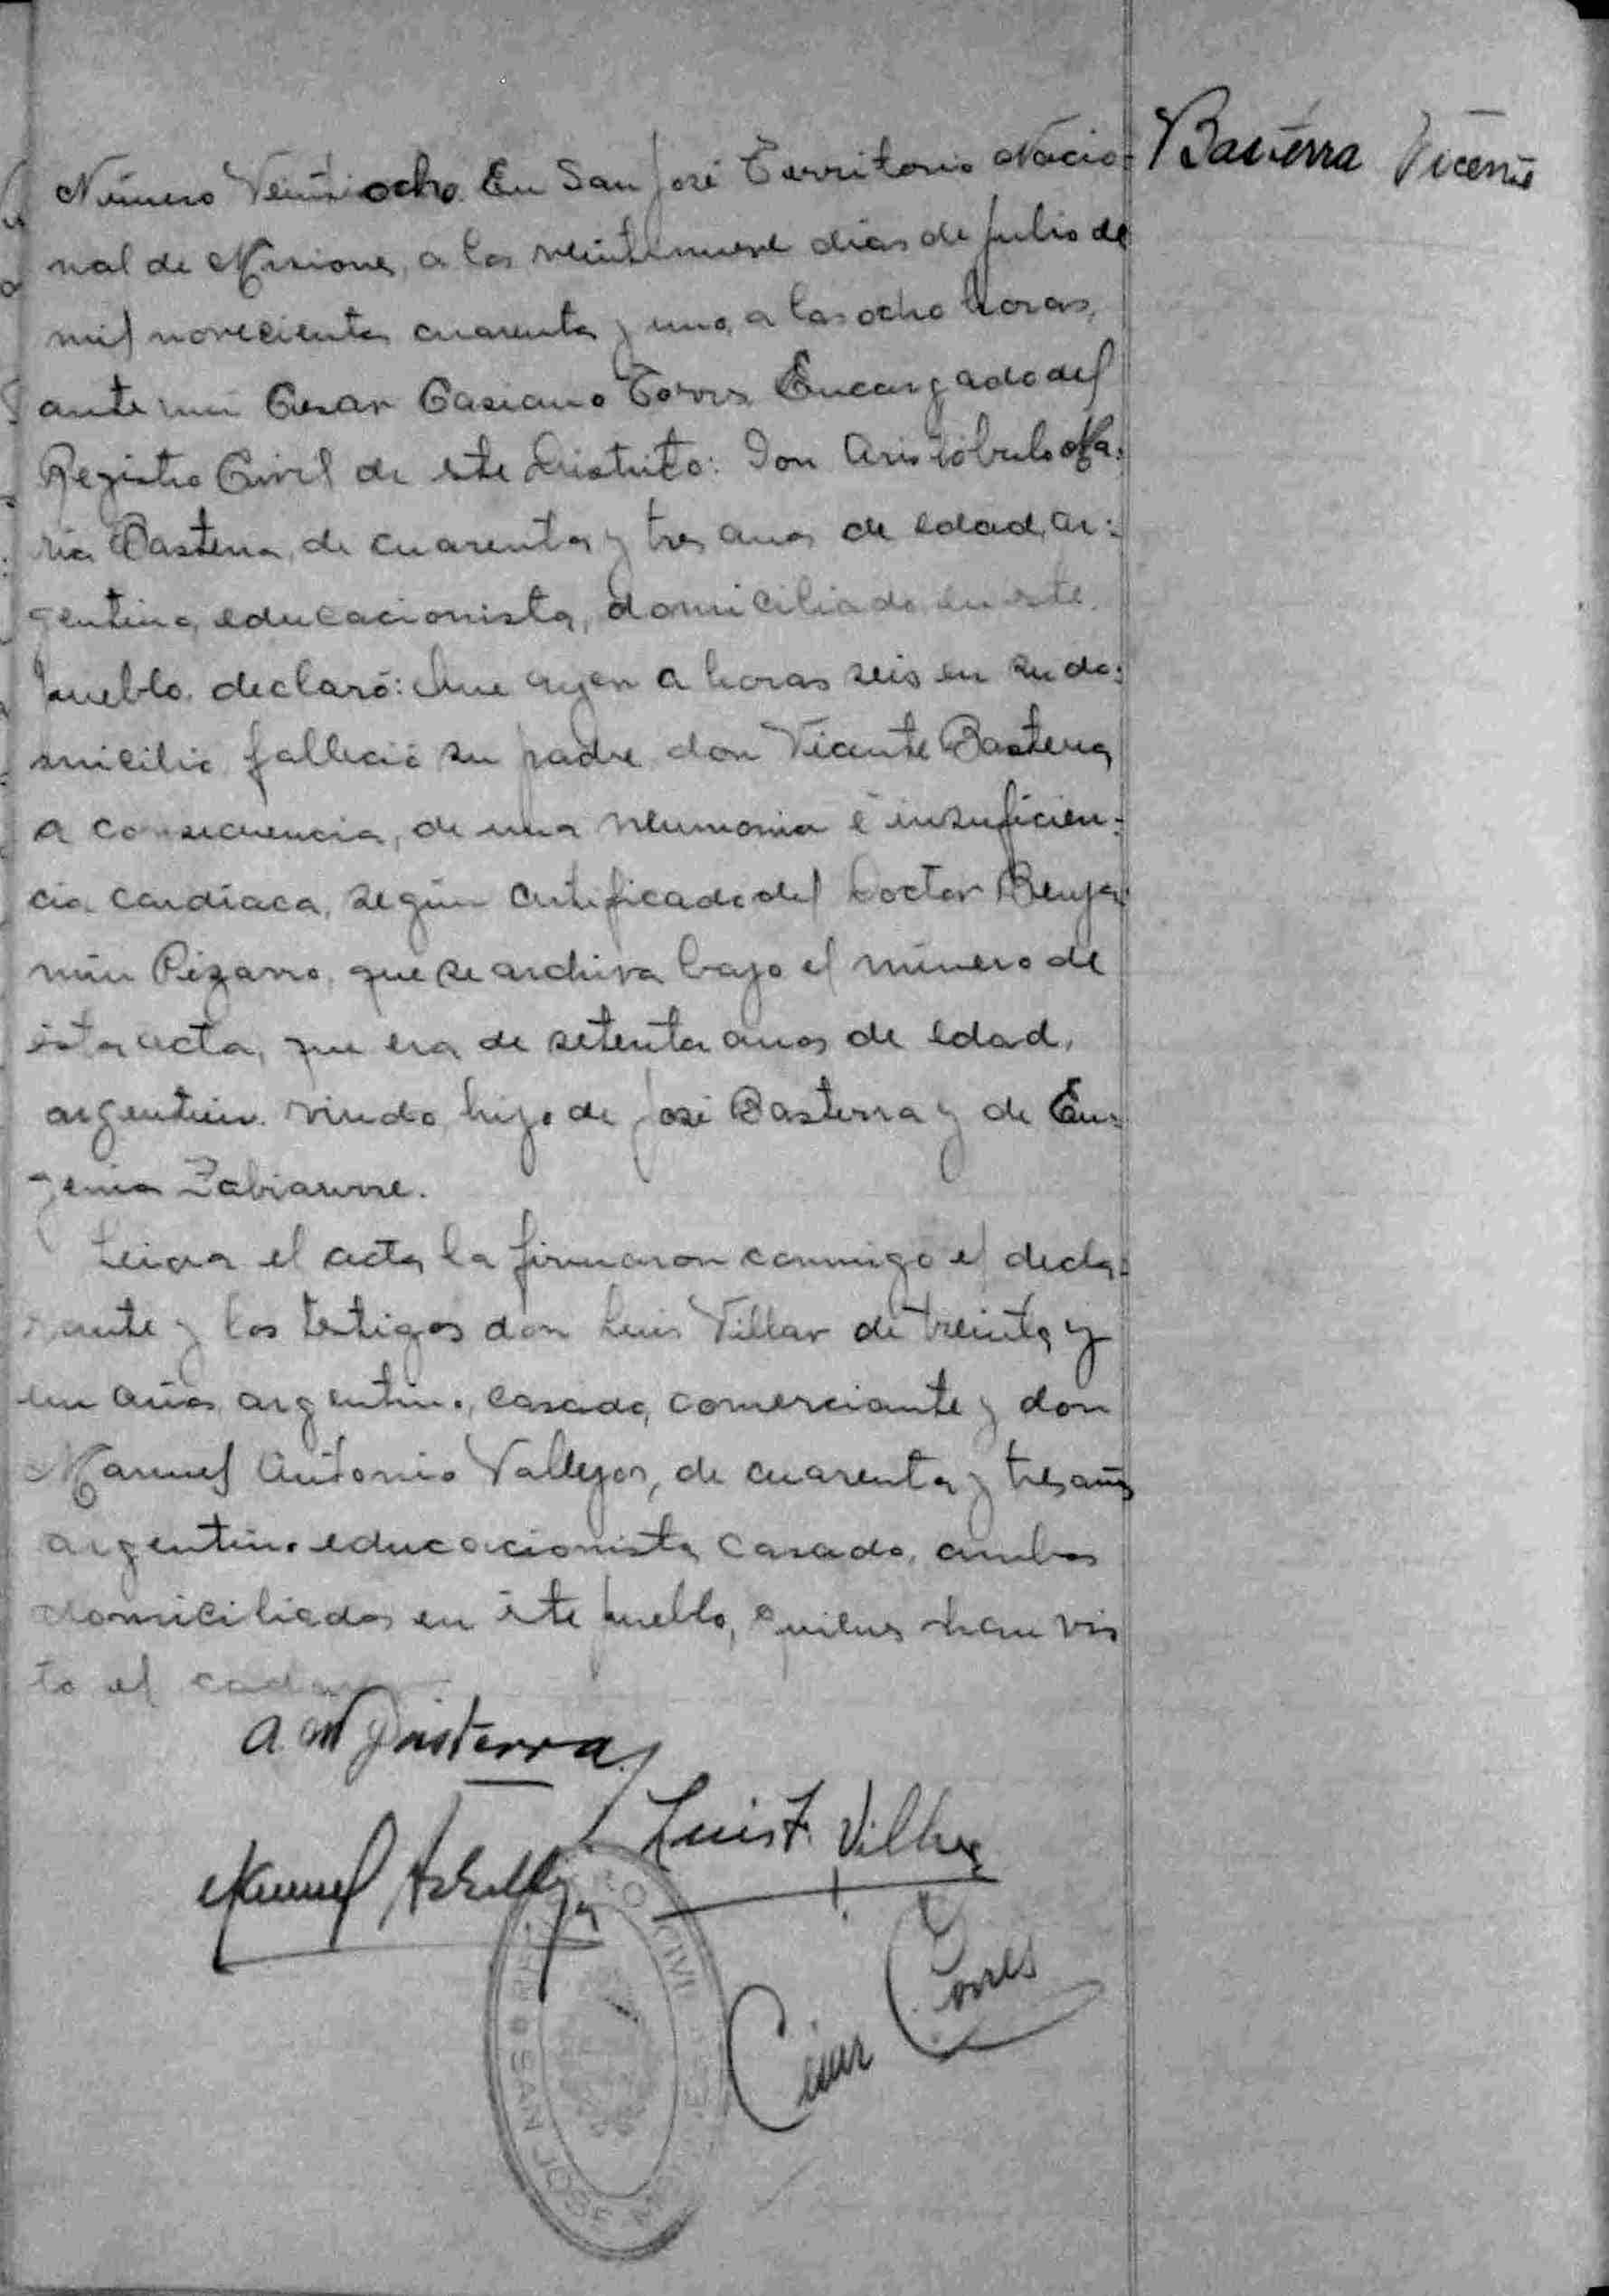 Basterra Vicente
Número Veintiocho. En San José Territorio Nacio=
nal de Misiones, a los veintinueve dias de Julio de
mil novecientos cuarenta y uno, a las ocho horas,
ante mi Cesar Casiano Torres Encargado del
Registro Civil de este Distrito: Don Aristóbulo Ma=
ria Basterra, de cuarenta y tres anos de edad, ar=
gentino, educacionista, domiciliado en este
pueblo. declaró: Que ayer a horas seis en su do=
micilio falleció su padre don Vicente Basterra
a consecuencia, de una neumonia é insuficien=
cia cardíaca, según certificado del Doctor Benja=
min Pizarro, que se archiva bajo el número de
ésta acta, que era de setenta anos de edad,
argentino. viudo, hijo de José Basterra y de Eu=
genia
Leida el acta, la firmaron conmigo el decla=
rante y los testigos don Luis Villar de treinta y
un años, argentino, casado, comerciante y don
Manuel Antonio Vallejos, de cuarenta y tres años
argentino educacionista, casado, ambos
domiciliados en éste pueblo, quienes han vis
to el
A. M Basterra
Luis F. Villar
Manuel
César Torres
SAN JOSE